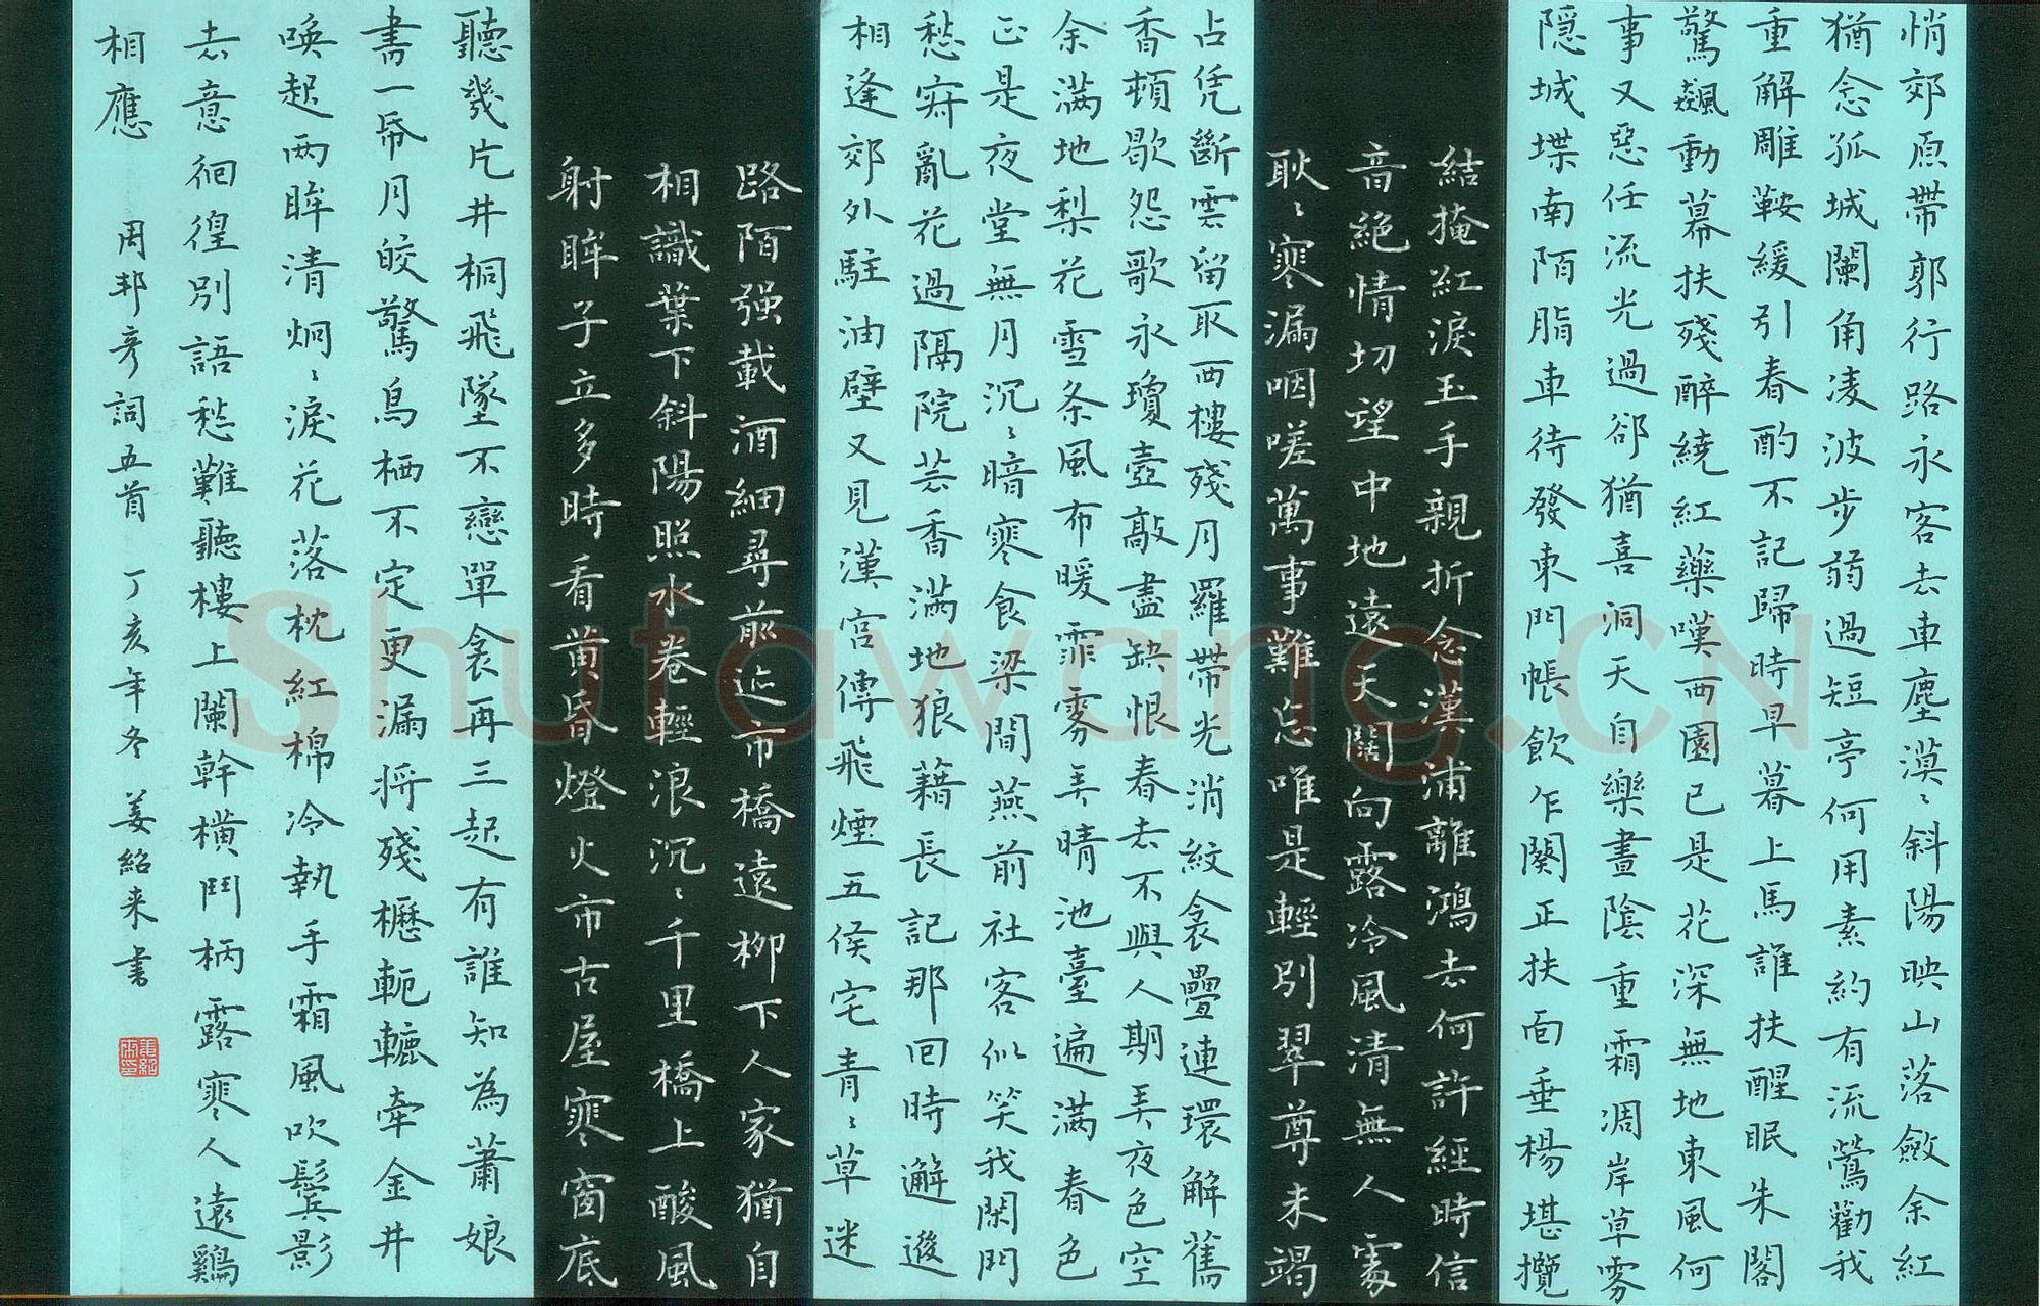 悄郊原帶郭行路永客去車塵漠〻斜陽映山落斂余紅
猶念孤城闌角凌波步弱過短亭何用素約有流鶯勸我
重解雕鞍緩引春酌不記歸時早暮上馬誰扶醒眠朱閣
驚飆動幕扶殘醉繞紅藥嘆西園已是花深無地東風何
事又惡任流光過卻猶喜洞天自樂晝陰重霜凋岸草雾
隱城堞南陌脂車待發東門帳飲乍闋正扶面垂楊堪攬
結掩紅淚玉手親折念漢浦離鴻去何許經時信
音絕情切望中地遠天闊向露冷風清無人處
耿〻寒漏咽嗟萬事難忘唯是輕別翠尊未竭
占凭斷雲留取西樓殘月羅帶光消紋衾疊連環解舊
香頓歇怨歌永瓊壺敲盡缺恨春去不與人期弄夜色空
余滿地梨花雪条風布暖霏雾弄晴池臺遍滿春色
正是夜堂無月沉〻暗寒食梁間燕前社客似笑我閑門
愁寂亂花過隔院芸香滿地狼藉長記那回時邂逅
相逢郊外駐油壁又見漢宮傳飛煙五侯宅青〻草迷
路陌强載酒細尋前迹市橋遠柳下人家猶自
相識葉下斜陽照水卷輕浪沉〻千里橋上酸風
射眸子立多時看黄昏燈火市古屋寒窗底
聽幾片井桐飛墜不戀單衾再三起有誰知為蕭娘
書一帋月皎驚烏栖不定更漏將殘櫪軛轆牽金井
喚起兩眸清炯〻淚花落枕紅棉冷執手霜風吹鬢影
去意徊徨別語愁難聽樓上闌幹橫鬥柄露寒人遠鷄
相應 周邦彦詞五首 丁亥年冬 姜紹来書
shufawang.cn